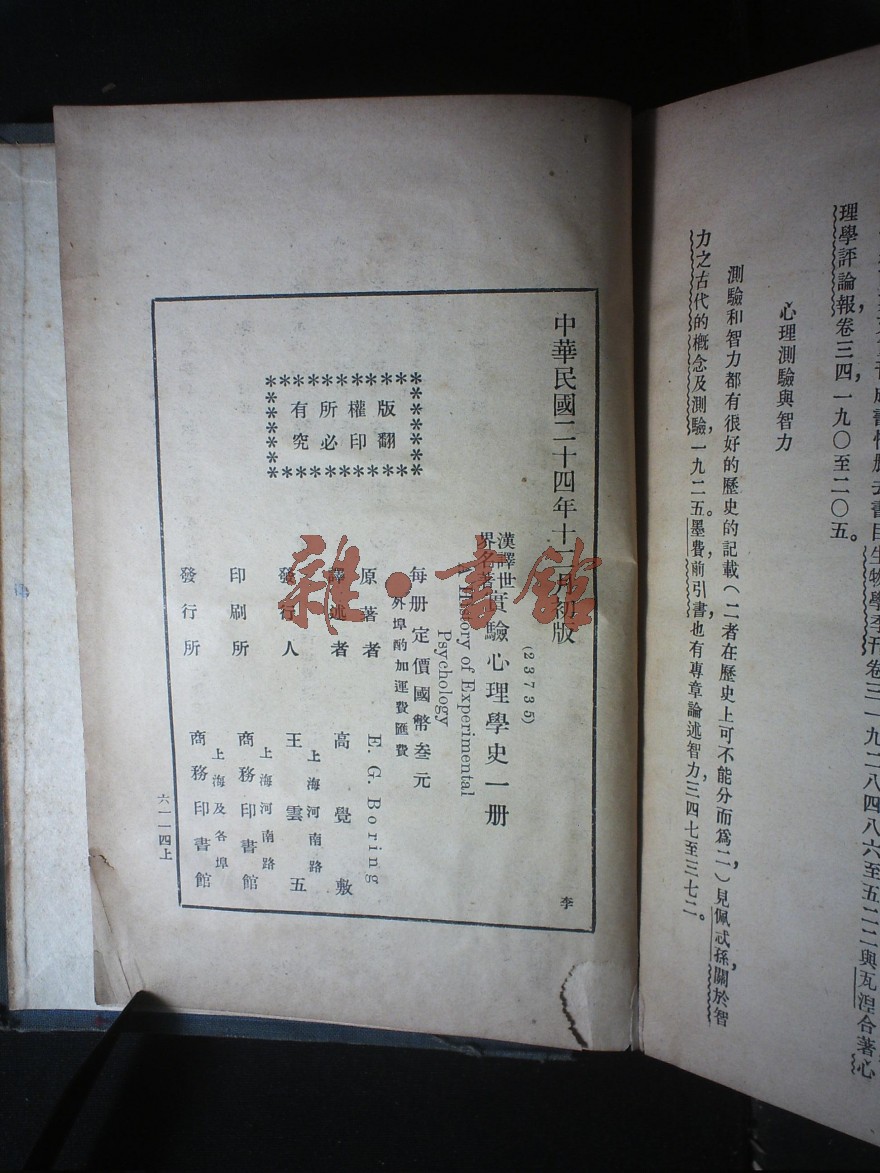 理學評論報卷三四,一九〇至二〇五。
心理測驗與智力
測驗和智力都有很好的歷史的記載(二者在歷史上可不能分而爲二,)見佩忒孫關於智
力之古代的概念及測驗,一九二五。墨費前引書,也有專章論述智力,三四七至三七二。
中華民國二十四年十一月初版
(23735)
漢譯世界名著
實驗心理學史一册
History of Experimental
Psychology
每册定價國幣叁元
外埠酌加運費匯費
原著者 E. G. Boring
譯述者 高覺敷
發行人 王雲五
上海河南路
印刷所 商務印書館
上海河南路
發行所 商務印書館
上海及各埠
版權所有
翻印必究
李
六一一四上
雜·書館